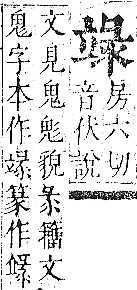 䇐
房六切
音伏說
文見鬼鬽貌彔籀文
鬼字本作篆作